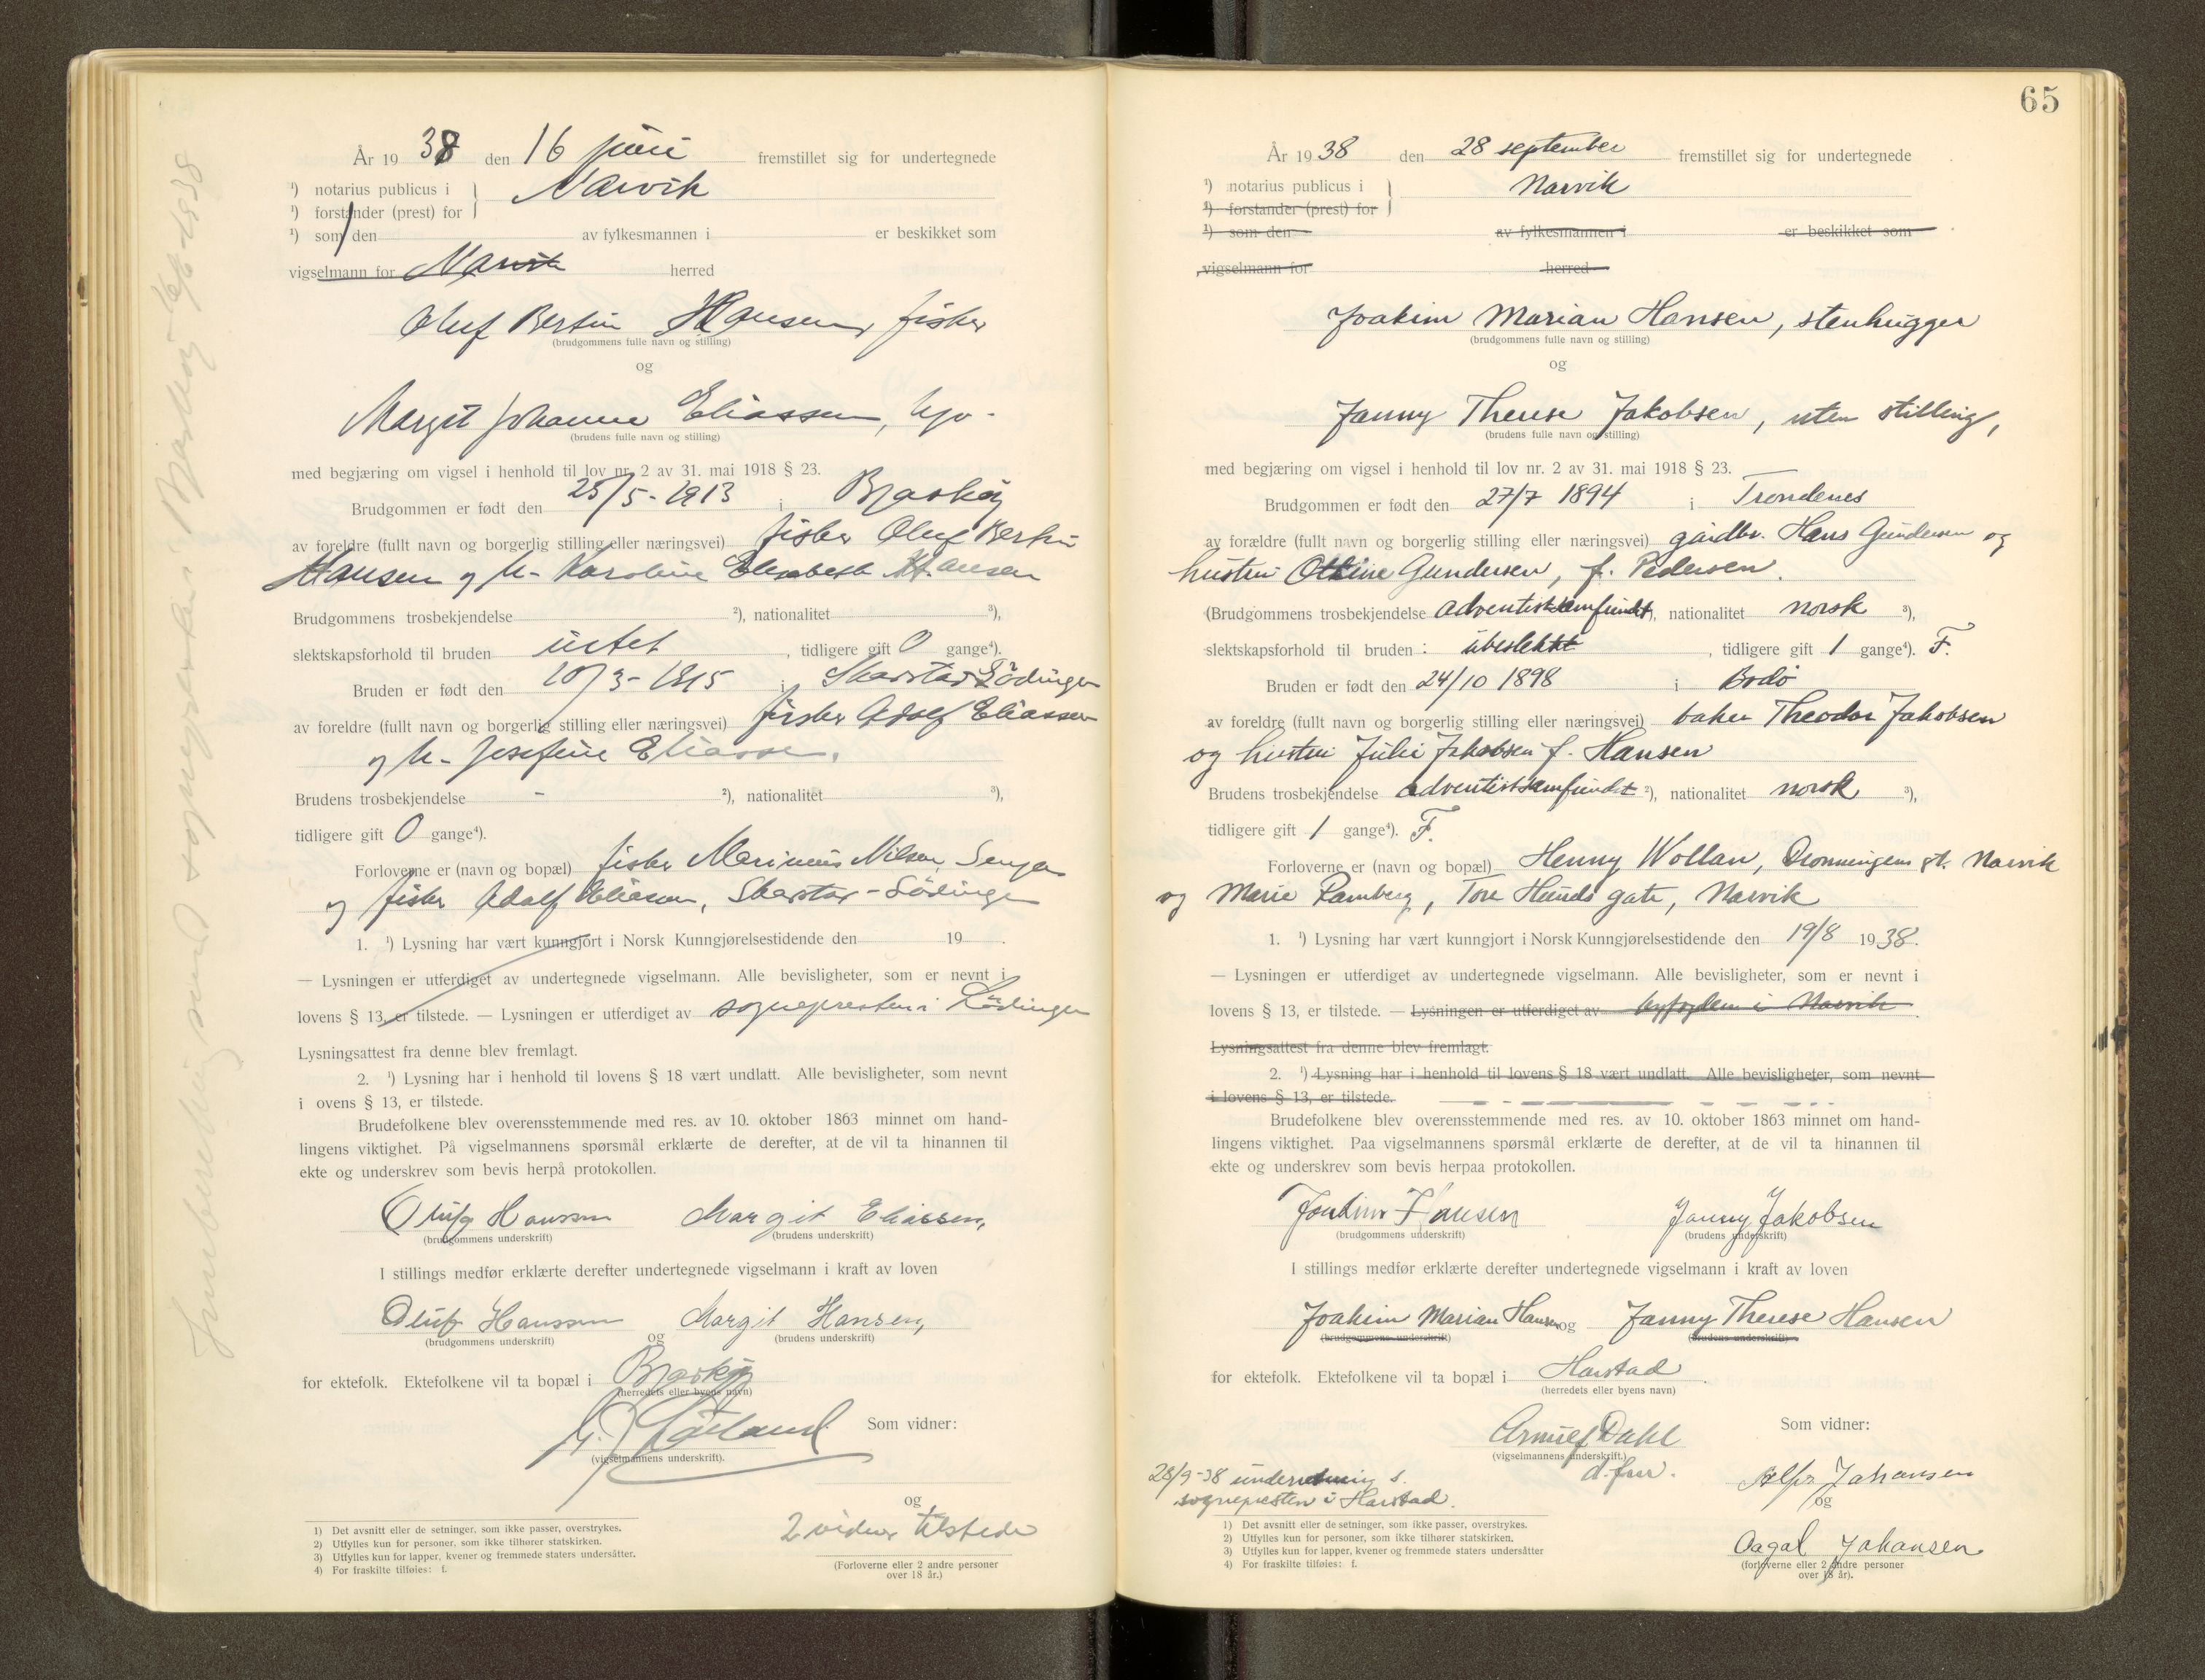 År 1938 den 16 juni fremstillet sig for undertegnede
¹) notarius publicus i } Narvik
¹) forstander (prest) for
¹) som den av fylkesmannen i er beskikket som
vigselmann for Narvik herred
Oluf Bertin Hansen, fisker
(brudgommens fulle navn og stilling)
og
Margit Johanne Eliassen,
(brudens fulle navn og stilling)
med begjæring om vigsel i henhold til lov nr. 2 av 31. mai 1918 § 23.
Brudgommen er født den 25/5-1913 i Bjarkøy
av foreldre (fullt navn og borgerlig stilling eller næringsvei) fisker Oluf Bertin
Hansen og h- Karoline Elisabeth Hansen
Brudgommens trosbekjendelse ²), nationalitet ³),
slektskapsforhold til bruden intet, tidligere gift 0 gange⁴).
Bruden er født den 10/3-1915 i Skarstad Lödingen
av foreldre (fullt navn og borgerlig stilling eller næringsvei) fisker Adolf Eliassen
og h- Josefine Eliassen.
Brudens trosbekjendelse - ²), nationalitet ³),
tidligere gift 0 gange⁴).
Forloverne er (navn og bopæl) fisker Marinius Nilsen, Senjen
og fisker Adolf Eliassen, Skarstad-Lödingen
1. ¹) Lysning har vært kunngjort i Norsk Kunngjørelsestidende den 19 .
— Lysningen er utferdiget av undertegnede vigselmann. Alle bevisligheter, som er nevnt i
lovens § 13, er tilstede. — Lysningen er utferdiget av sognepresten i Lödingen
Lysningsattest fra denne blev fremlagt.
2. ¹) Lysning har i henhold til lovens § 18 vært undlatt. Alle bevisligheter, som nevnt
i ovens § 13, er tilstede.
Brudefolkene blev overensstemmende med res. av 10. oktober 1863 minnet om hand-
lingens viktighet. På vigselmannens spørsmål erklærte de derefter, at de vil ta hinannen til
ekte og underskrev som bevis herpå protokollen.
Oluf Hanssen Margit Eliassen,
(brudgommens underskrift) (brudens underskrift)
I stillings medfør erklærte derefter undertegnede vigselmann i kraft av loven
Oluf Hanssen og Margit Hansen,
(brudgommens underskrift) (brudens underskrift)
for ektefolk. Ektefolkene vil ta bopæl i Bjarkøy
(herredets eller byens navn)
Som vidner:
(vigselmannens underskrift).
og
2 vidner tilstede
(Forloverne eller 2 andre personer
over 18 år.)
1) Det avsnitt eller de setninger, som ikke passer, overstrykes.
2) Utfylles kun for personer, som ikke tilhører statskirken.
3) Utfylles kun for lapper, kvener og fremmede staters undersåtter.
4) For fraskilte tilføies: f.
Innberetning sendt sognepresten i Bjarkøy 1938
65
År 1938 den 28 september fremstillet sig for undertegnede
¹) notarius publicus i } Narvik
¹) forstander (prest) for
¹) som den av fylkesmannen i er beskikket som
vigselmann for herred
Joakim Marian Hansen, stenhugger
(brudgommens fulle navn og stilling)
og
Janny Therese Jakobsen, uten stilling,
(brudens fulle navn og stilling)
med begjæring om vigsel i henhold til lov nr. 2 av 31. mai 1918 § 23.
Brudgommen er født den 27/7 1894 i Trondenes
av forældre (fullt navn og borgerlig stilling eller næringsvei) gårdbr. Hans Gundersen og
hustru Ottine Gundersen, f. Pedersen.
(Brudgommens trosbekjendelse adventistsamfundet), nationalitet norsk ³),
slektskapsforhold til bruden : ubeslektet, tidligere gift 1 gange⁴). F.
Bruden er født den 24/10 1898 i Bodö
av foreldre (fullt navn og borgerlig stilling eller næringsvei) baker Theodor Jakobsen
og hustru Julie Jakobsen f. Hansen
Brudens trosbekjendelse adventistsamfundet ²), nationalitet norsk ³),
tidligere gift 1 gange⁴). F.
Forloverne er (navn og bopæl) Henny Wollan, Dronningens gt. Narvik
og Marie Ramberg, Tore Hunds gate, Narvik
1. ¹) Lysning har vært kunngjort i Norsk Kunngjørelsestidende den 19/8 1938.
— Lysningen er utferdiget av undertegnede vigselmann. Alle bevisligheter, som er nevnt i
lovens § 13, er tilstede. — Lysningen er utferdiget av byfogden i Narvik.
Lysningsattest fra denne blev fremlagt.
2. ¹) Lysning har i henhold til lovens § 18 vært undlatt. Alle bevisligheter, som nevnt
i lovens § 13, er tilstede.
Brudefolkene blev overensstemmende med res. av 10. oktober 1863 minnet om hand-
lingens viktighet. Paa vigselmannens spørsmål erklærte de derefter, at de vil ta hinannen til
ekte og underskrev som bevis herpaa protokollen.
Joakim Hansen Janny Jakobsen
(brudgommens underskrift) (brudens underskrift)
I stillings medfør erklærte derefter undertegnede vigselmann i kraft av loven
Joakim Marian Hansen og Janny Therese Hansen
(brudgommens underskrift) (brudens underskrift)
for ektefolk. Ektefolkene vil ta bopæl i Harstad.
(herredets eller byens navn)
Arnulf Dahl Som vidner:
(vigselmannens underskrift.)
d. fur.
28/9-38 underretning s.
sognepresten i Harstad.
Alfr. Johansen
og
Dagal Johansen
(forloverne eller 2 andre personer
over 18 år).
1) Det avsnitt eller de setninger, som ikke passer, overstrykes.
2) Utfylles kun for personer, som ikke tilhører statskirken.
3) Utfylles kun for lapper, kvener og fremmede staters undersåtter
4) For fraskilte tilføies: f.